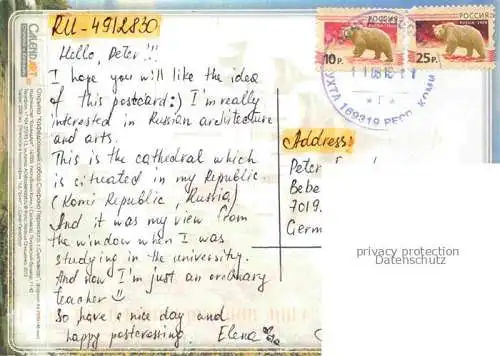 RU-4912830
Hello, Peter!!!
I hope you will like the idea
of this postcard:) I'm really
interested in Russian architecture
and arts.
This is the cathedral which
is situated in my Republic
(Komi Republic, Russia)
And it was my view from
the window when I was
studying in the university.
And now I'm just an ordinary
teacher
So have a nice day and
happy postcrossing. Elena
РОССИЯ
RUSSIA · 2008
10 Р.
РОССИЯ
RUSSIA · 2008
25 Р.
УХТА 169319 РЕСП. КОМИ
Address:
Peter
Bebe
7019
Germ
privacy protection
Datenschutz